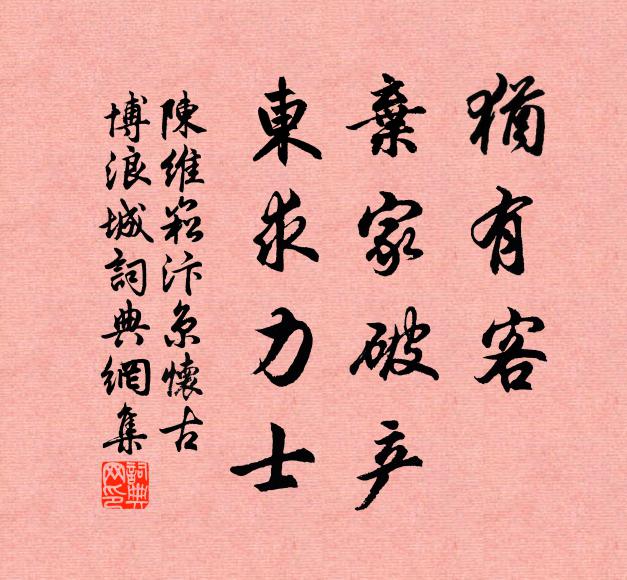 猶有客
棄家破产
東求力士
陳維崧汴京懷古
博浪城詞典網集
詞典网印